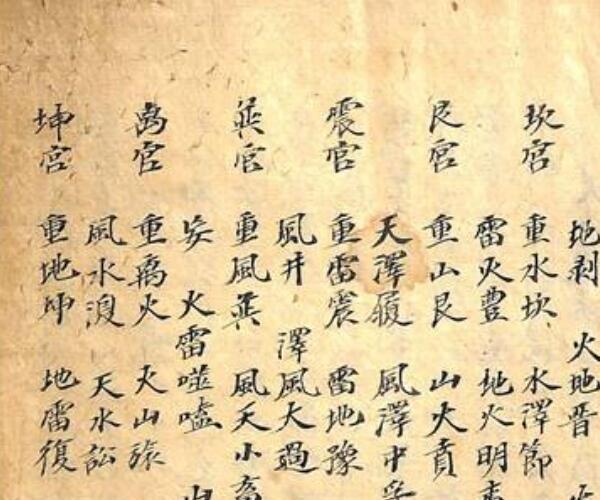 地剥 火地晋
坎宫 重水坎 水澤節
雷火豊 地火明
艮宫 重山艮 山火賁
天澤履 風澤中
震宫 重雷震 雷地豫
風井 澤風大過
巽宫 重風巽 風天小畜
妄 火雷噬嗑
离宫 重离火 火山旅
風水渙 天水訟
坤宫 重地坤 地雷復